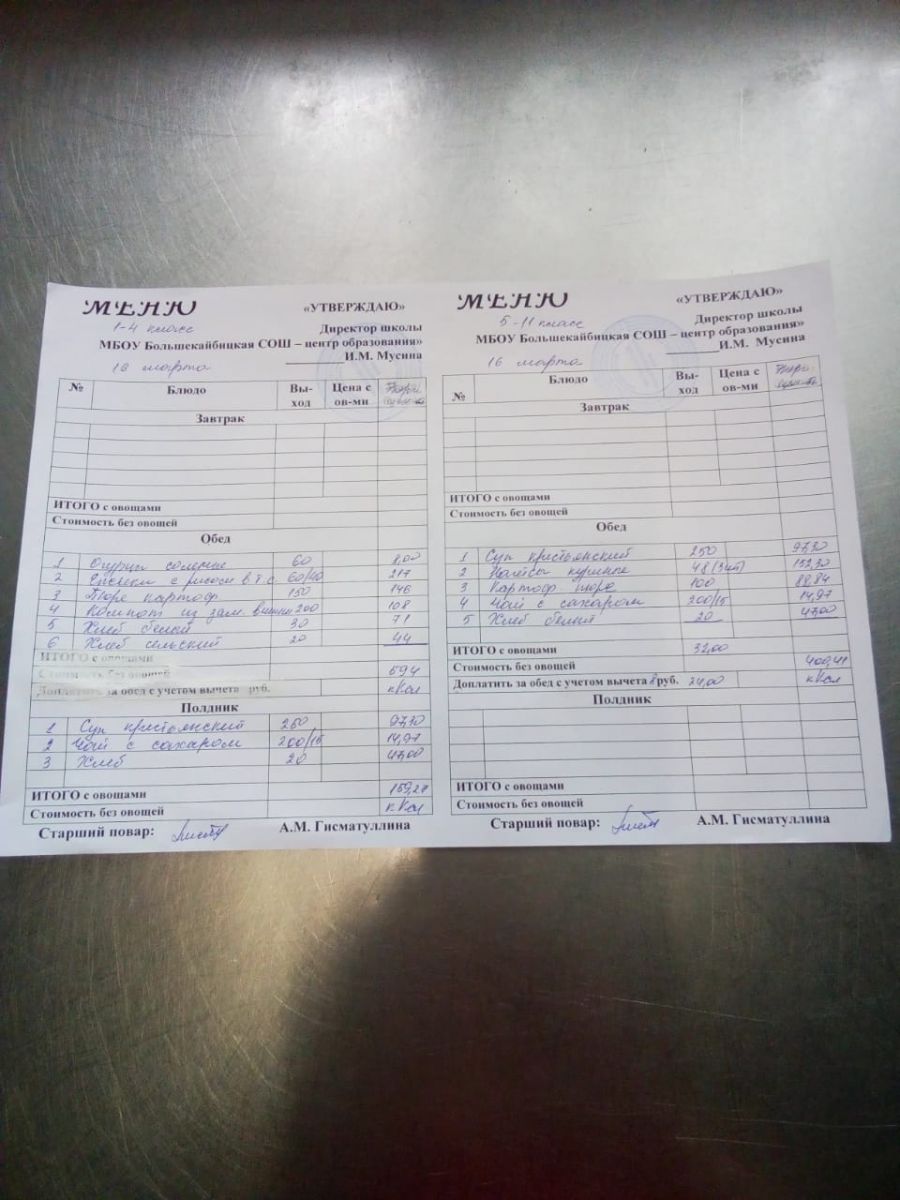 МЕНЮ «УТВЕРЖДАЮ»
1-4 класс Директор школы
МБОУ Большекайбицкая СОШ – центр образования»
И.М. Мусина
16 марта
№ Блюдо Вы-ход Цена с ов-ми
Завтрак
ИТОГО с овощами
Стоимость без овощей
Обед
1 Огурцы соленые 60 8,00
2 с рисом в т.с. 60/40 217
3 Пюре картоф. 150 146
4 Компот из зам. вишни 200 108
5 Хлеб белый 30 71
6 Хлеб сельский 20 44
ИТОГО с овощами
Стоимость без овощей 594
Доплатить за обед с учетом вычета руб. кКал
Полдник
1 Суп крестьянский 250 97,30
2 Чай с сахаром 200/15 14,97
3 Хлеб 20 47,00
ИТОГО с овощами 159,27
Стоимость без овощей кКал
Старший повар: А.М. Гисматуллина
МЕНЮ «УТВЕРЖДАЮ»
5-11 класс Директор школы
МБОУ Большекайбицкая СОШ – центр образования»
И.М. Мусина
16 марта
№ Блюдо Вы-ход Цена с ов-ми
Завтрак
ИТОГО с овощами
Стоимость без овощей
Обед
1 Суп крестьянский 250 97,30
2 куриные 48 152,30
3 Картоф. пюре 100 88,84
4 Чай с сахаром 200/15 14,97
5 Хлеб белый 20 47,00
ИТОГО с овощами 32,00
Стоимость без овощей 400,41
Доплатить за обед с учетом вычета 8 руб. 24,00 кКал
Полдник
ИТОГО с овощами
Стоимость без овощей
Старший повар: А.М. Гисматуллина